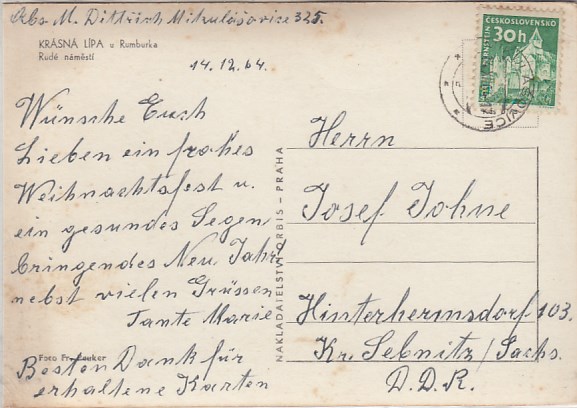 Abs. M. Dittrich Mikulášovice 325.
KRÁSNÁ LÍPA u Rumburka
Rudé náměstí
14.12.64.
ČESKOSLOVENSKO
30h
PERNŠTEJN
Wünsche Euch
Lieben ein frohes
Weihnachtsfest u.
ein gesundes Segen
bringendes Neu Jahr
nebst vielen Grüssen
Tante Marie
Foto Fr.
Besten Dank für
erhaltene Karten
NAKLADATELSTVÍ ORBIS - PRAHA
Herrn
Josef Johne
Hinterhermsdorf 103.
Kr. Sebnitz / Sachs.
D.D.R.